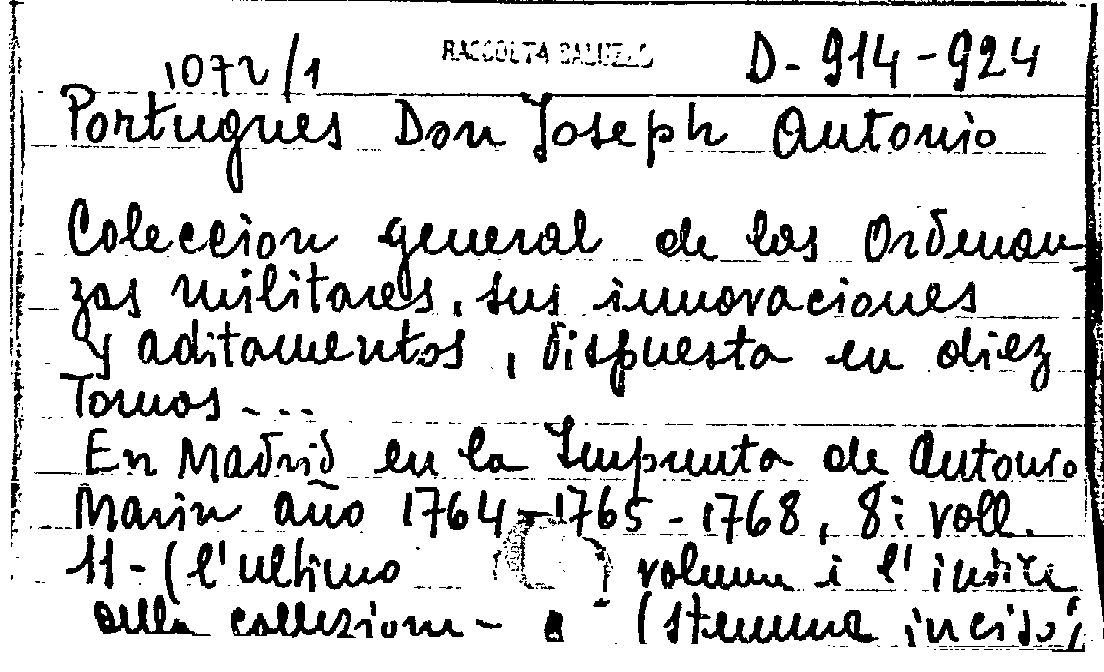 1072/1 RACCOLTA SALUZZO D-914-924
Portugues Don Joseph Antonio
Coleccion general de las Ordenan-
zas militares, sus innovaciones
y aditamentos, dispuesta en diez
Tomos ---
En Madrid en la Imprenta de Antonio
Marin año 1764-1765-1768, 8: voll.
11-(l'ultimo volume è l'indice
della collezione- (stemma inciso)